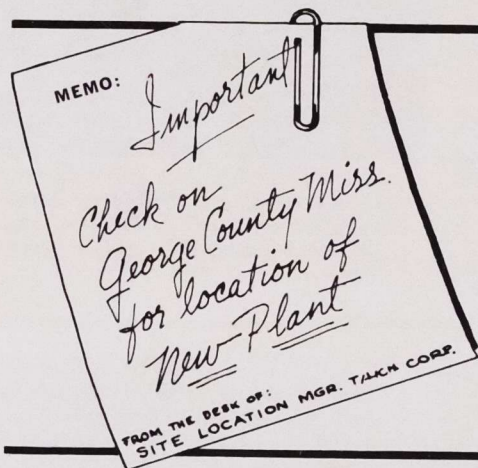 MEMO:
Important
Check on
George County Miss.
for location of
New Plant
FROM THE DESK OF:
SITE LOCATION MGR. CORP.